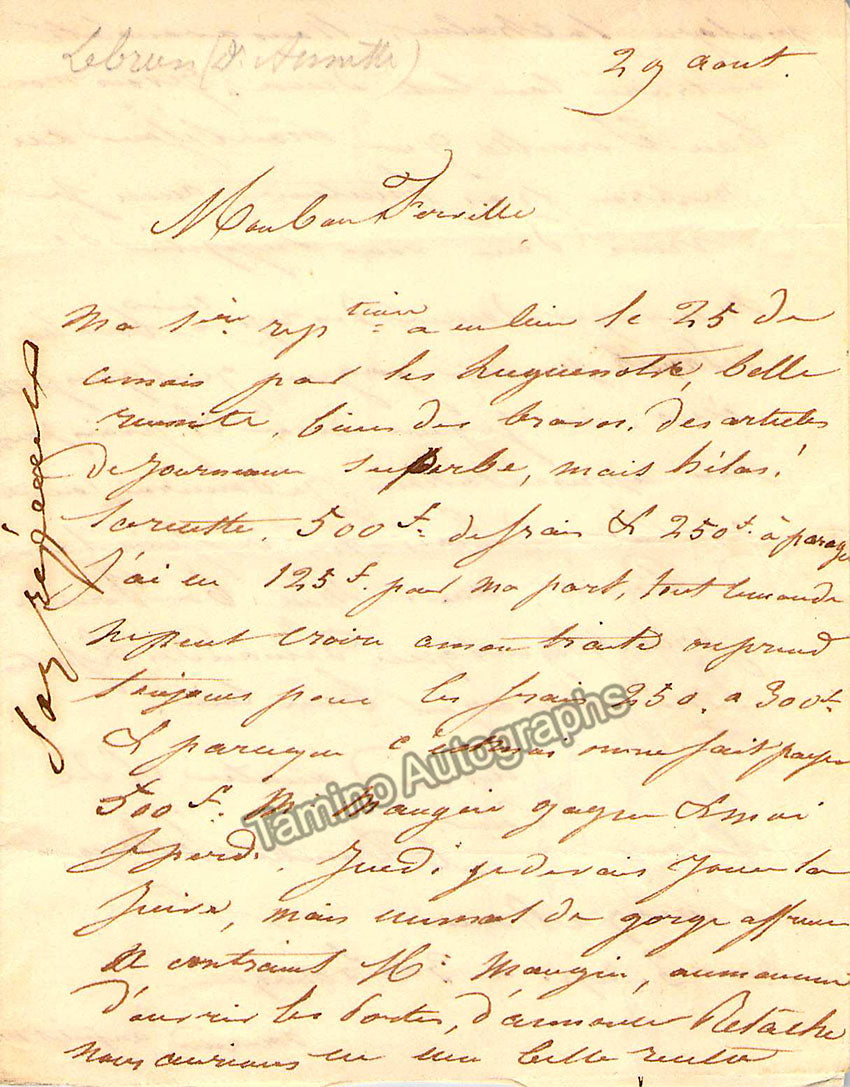 Lebrun (d'
29 aout.
Mon bon Ferville
Ma 1ère rep tion a eu lieu le 25 de
ce mois par les huguenots, belle
reussite, bien des bravos, des articles
de journeaux superbe, mais hélas!
la recette, 500 f. de frais & 250 f. à
J'ai eu 125 f. pour ma part, tout le monde
ne peut croire a mon traité on prend
toujours pour les frais 250. a 300 f.
& parceque c'est moi on me fait payer
500 f. Mr. Maugin gagne & moi
J perd. Jeudi je devais jouer la
Juive, mais un mal de gorge affreux
a contraint Mr. Maugin, au moment
d'ouvrir les portes, d'annoncer Relache
nous aurions eu une belle recette
Tamino Autographs